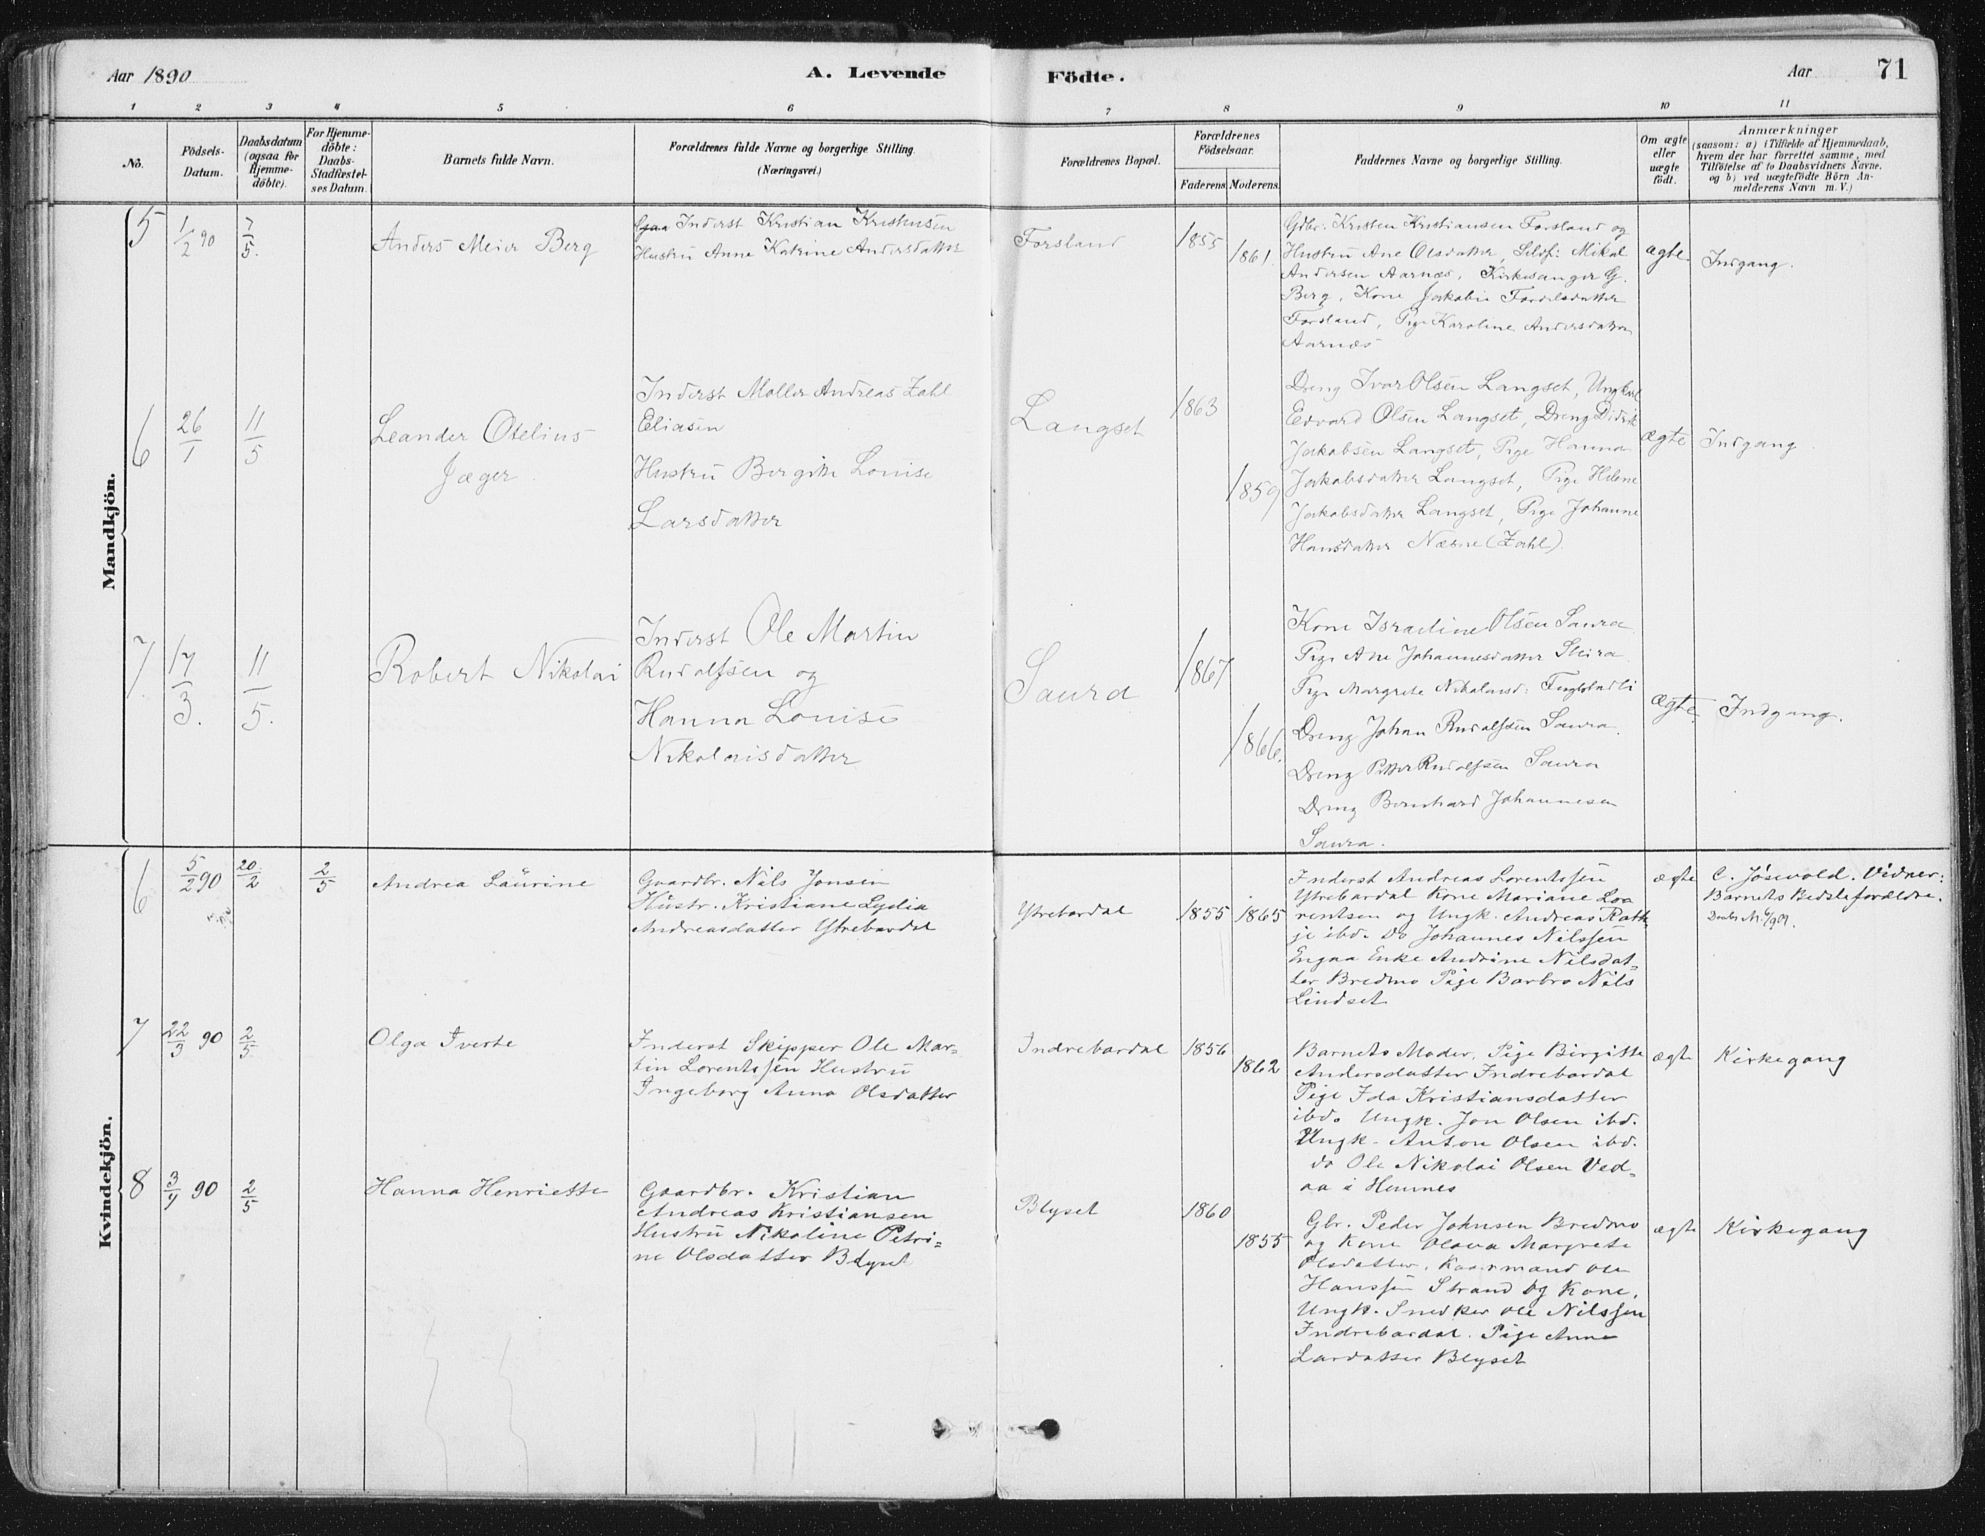 Aar 1890
A. Levende Födte.
Aar 71
1 2 3 4 5 6 7 8 9 10 11
No.
Födsels-Datum.
Daabsdatum (ogsaa for Hjemme-döbte).
For Hjemme-döbte: Daabs-Stadfæstel-ses Datum.
Barnets fulde Navn.
Forældrenes fulde Navne og borgerlige Stilling.
(Næringsvei.)
Forældrenes Bopæl.
Forældrenes Födselsaar.
Faderens. Moderens.
Faddernes Navne og borgerlige Stilling.
Om ægte eller uægte födt.
Anmærkninger
(saasom: a) i Tilfælde af Hjemmedaab,
hvem der har forrettet samme, med
Tilföielse af to Daabsvidners Navne,
og b) ved uægtefödte Börn An-
melderens Navn m. V.)
Mandkjön.
5 1/2 90 7/5.
Anders Meier Berg
Inderst Kristian Kristensen
Hustru Anne Katrine Andersdatter
Forsland
1855
1861.
Gdbr. Kristen Kristiansen Forsland og
Hustru Ane Olsdatter, Mikal
Andersen Aarnæs, Kirkesanger G.
Berg, Kone Jakobie
Forsland, Pige Karoline Andersdatter
Aarnæs
ægte
Indgang.
6 26/1 11/5
Leander Otelius
Jæger.
Inderst Møller Andreas Zahl
Eliasen
Hustru Bergitte Louise
Larsdatter
Langset
1863
1859
Dreng Ivar Olsen Langset, Ungkarl
Edvard Olsen Langset, Dreng Didrik
Jakobsen Langset, Pige Hanna
Jakobsdatter Langset, Pige Helene
Jakobsdatter Langset, Pige Johanne
Hansdatter Næsne (Zahl).
ægte
Indgang.
7. 17/3. 11/5.
Robert Nikolai
Inderst Ole Martin
Rudolfsen og
Hanna Louise
Nikolaisdatter
Saura
1867
1866.
Kone Israeline Olsen Saura
Pige Ane Johannesdatter Sleira
Pige Margrete Nikolaisd:
Dreng Johan Rudolfsen Saura.
Dreng Petter Rudolfsen Saura
Dreng Bernhard Johannesen
Saura.
ægte.
Indgang.
Kvindekjön.
6 5/2 90 20/2 2/5
Andrea Laurine
Gaardbr. Nils Jonsen
Hustr. Kristiane Lydia
Andreasdatter Ytrebardal
Ytrebardal
1855 1865
Inderst Andreas Lorentssen
Ytrebardal Kone Mariane Loo
rentsen og Ungk. Andreas Rath
je ibd. Do Johannes Nilssen
Engaa Enke Andrine Nilsdat-
ter Bredmo Pige Barbro Nils
Lindset
ægte
C. Jøsevold. Vidner:
Barnets Bedsteforældre.
7 22/3 90 2/5
Olga Iverte
Inderst Skipper Ole Mar-
tin Lorentssen Hustru
Ingeborg Anna Olsdatter
Indrebardal
1856
1862
Barnets Moder, Pige Birgitte
Andersdatter Indrebardal
Pige Ida Kristiansdatter
ibd. Ungk. Jon Olsen ibd.
Ungk. Anton Olsen ibd.
do Ole Nikolai Olsen Ved-
aa i Hemnes
ægte
Kirkegang
8 3/4 90 2/5
Hanna Henriette
Gaardbr. Kristian
Andreas Kristiansen
Hustru Nikoline Petri-
ne Olsdatter Blyset
Blyset
1860
1855
Gbr. Peder Johnsen Bredmo
og Kone Olava Margrete
Olsdatter, Kaarmand Ole
Hanssen Strand og Kone,
Ungk. Snedker Ole Nilssen
Indrebardal. Pige Anne
Larsdatter Blyset
ægte
Kirkegang